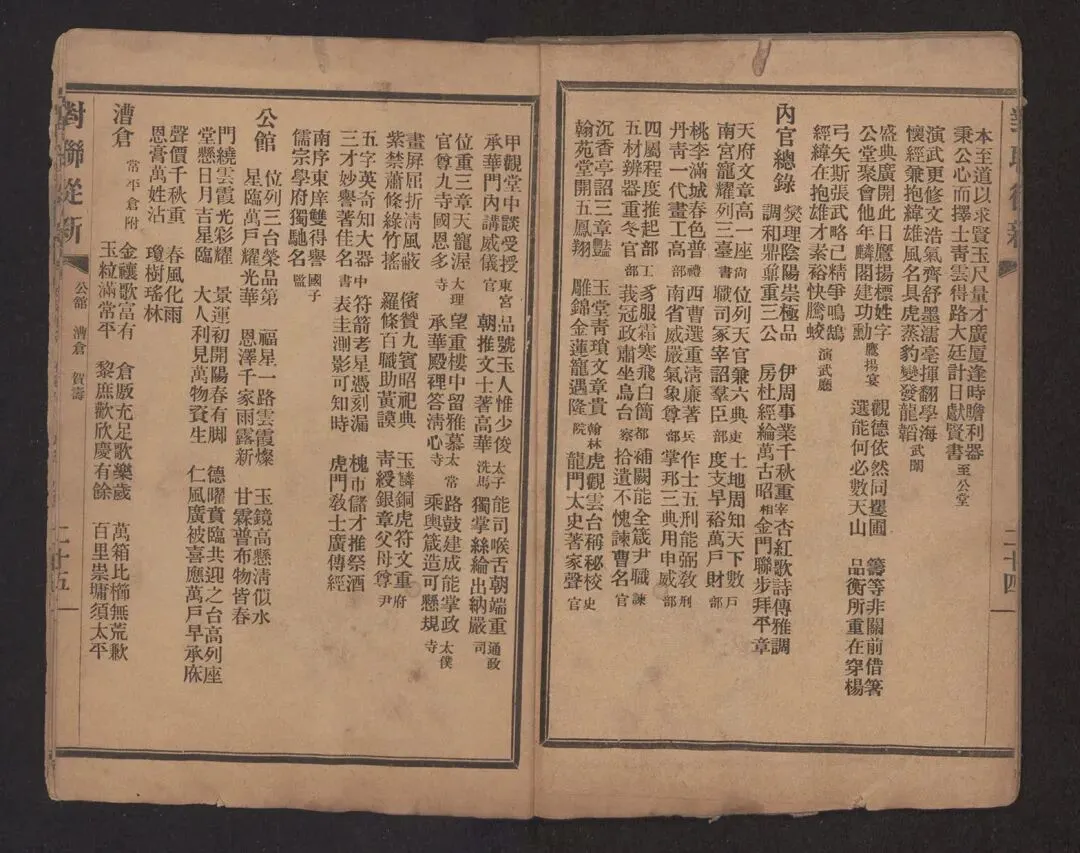 對聯從新
二十四
本至道以求賢玉尺量才廣厦逢時瞻利器
秉公心而擇士靑雲得路大廷計日獻賢書 至公堂
演武更修文浩氣齊舒墨濡毫揮翻學海
懷經兼抱緯雄風名具虎蒸豹變發龍韜 武闈
盛典廣開此日鷹揚標姓字 觀德依然同矍圃 籌等非關前借箸
公堂聚會他年麟閣建功勳 鷹揚宴 選能何必數天山 品衡所重在穿楊
弓矢斯張武略己精爭鳴鵠
經緯在抱雄才素裕快騰蛟 演武廳
內官總錄 燮理陰陽崇極品 伊周事業千秋重 宰 杏紅歌詩傳雅調
調和鼎鼐重三公 房杜經綸萬古昭 相 金門聯步拜平章
天府文章高一座 尙 位列天官兼六典 吏 土地周知天下數 戶
南宮寵耀列三臺 書 職司冢宰詔羣臣 部 度支早裕萬戶財 部
桃李滿城春色普 禮 西曹選重淸廉著 兵 作士五刑能弼敎 刑
丹靑一代畫工高 部 南省威嚴氣象尊 部 掌邦三典用申威 部
四屬程度推起部 工 豸服霜寒飛白簡 都 補闕能全箴尹職 諫
五材辨器重冬官 部 峩冠政肅坐烏台 察 拾遺不愧諫曹名 官
沉香亭詔三章豔 玉堂靑瑣文章貴 翰林 虎觀雲台稱秘校 史
翰苑堂開五鳳翔 雕錦金蓮寵遇隆 院 龍門太史著家聲 官
甲觀堂中談受授 東宮 品號玉人惟少俊 太子 能司喉舌朝端重 通政
承華門內講威儀 官 朝推文士著高華 洗馬 獨掌絲綸出納嚴 司
位重三章天寵渥 大理 望重樓中留雅慕 太常 路鼓建成能掌政 太僕
官尊九寺國恩多 寺 承華殿裡答淸心 寺 乘輿箴造可懸規 寺
畫屏屈折淸風蔽 儐贊九賓昭祀典 玉麟銅虎符文重 府
紫禁蕭條綠竹搖 羅條百職助黃謨 靑綬銀章父母尊 尹
五字英奇知大器 中 符箭考星憑刻漏 槐市儲才推祭酒
三才妙譽著佳名 書 表圭測影可知時 虎門敎士廣傳經
南序東庠雙得譽 國子
儒宗學府獨馳名 監
公館 位列三台榮品第 福星一路雲霞燦 玉鏡高懸淸似水
星臨萬戶耀光華 恩澤千家雨露新 甘霖普布物皆春
門繞雲霞光彩耀 景運初開陽春有脚 德曜賁臨共迎之台高列座
堂懸日月吉星臨 大人利見萬物資生 仁風廣被喜應萬戶早承庥
聲價千秋重 春風化雨
恩膏萬姓沾 瓊樹瑤林
漕倉 常平倉附 金穰歌富有 倉廒充足歌樂歲 萬箱比櫛無荒歉
玉粒滿常平 黎庶歡欣慶有餘 百里崇墉須太平
對聯從新
公館 漕倉 賀壽
二十五